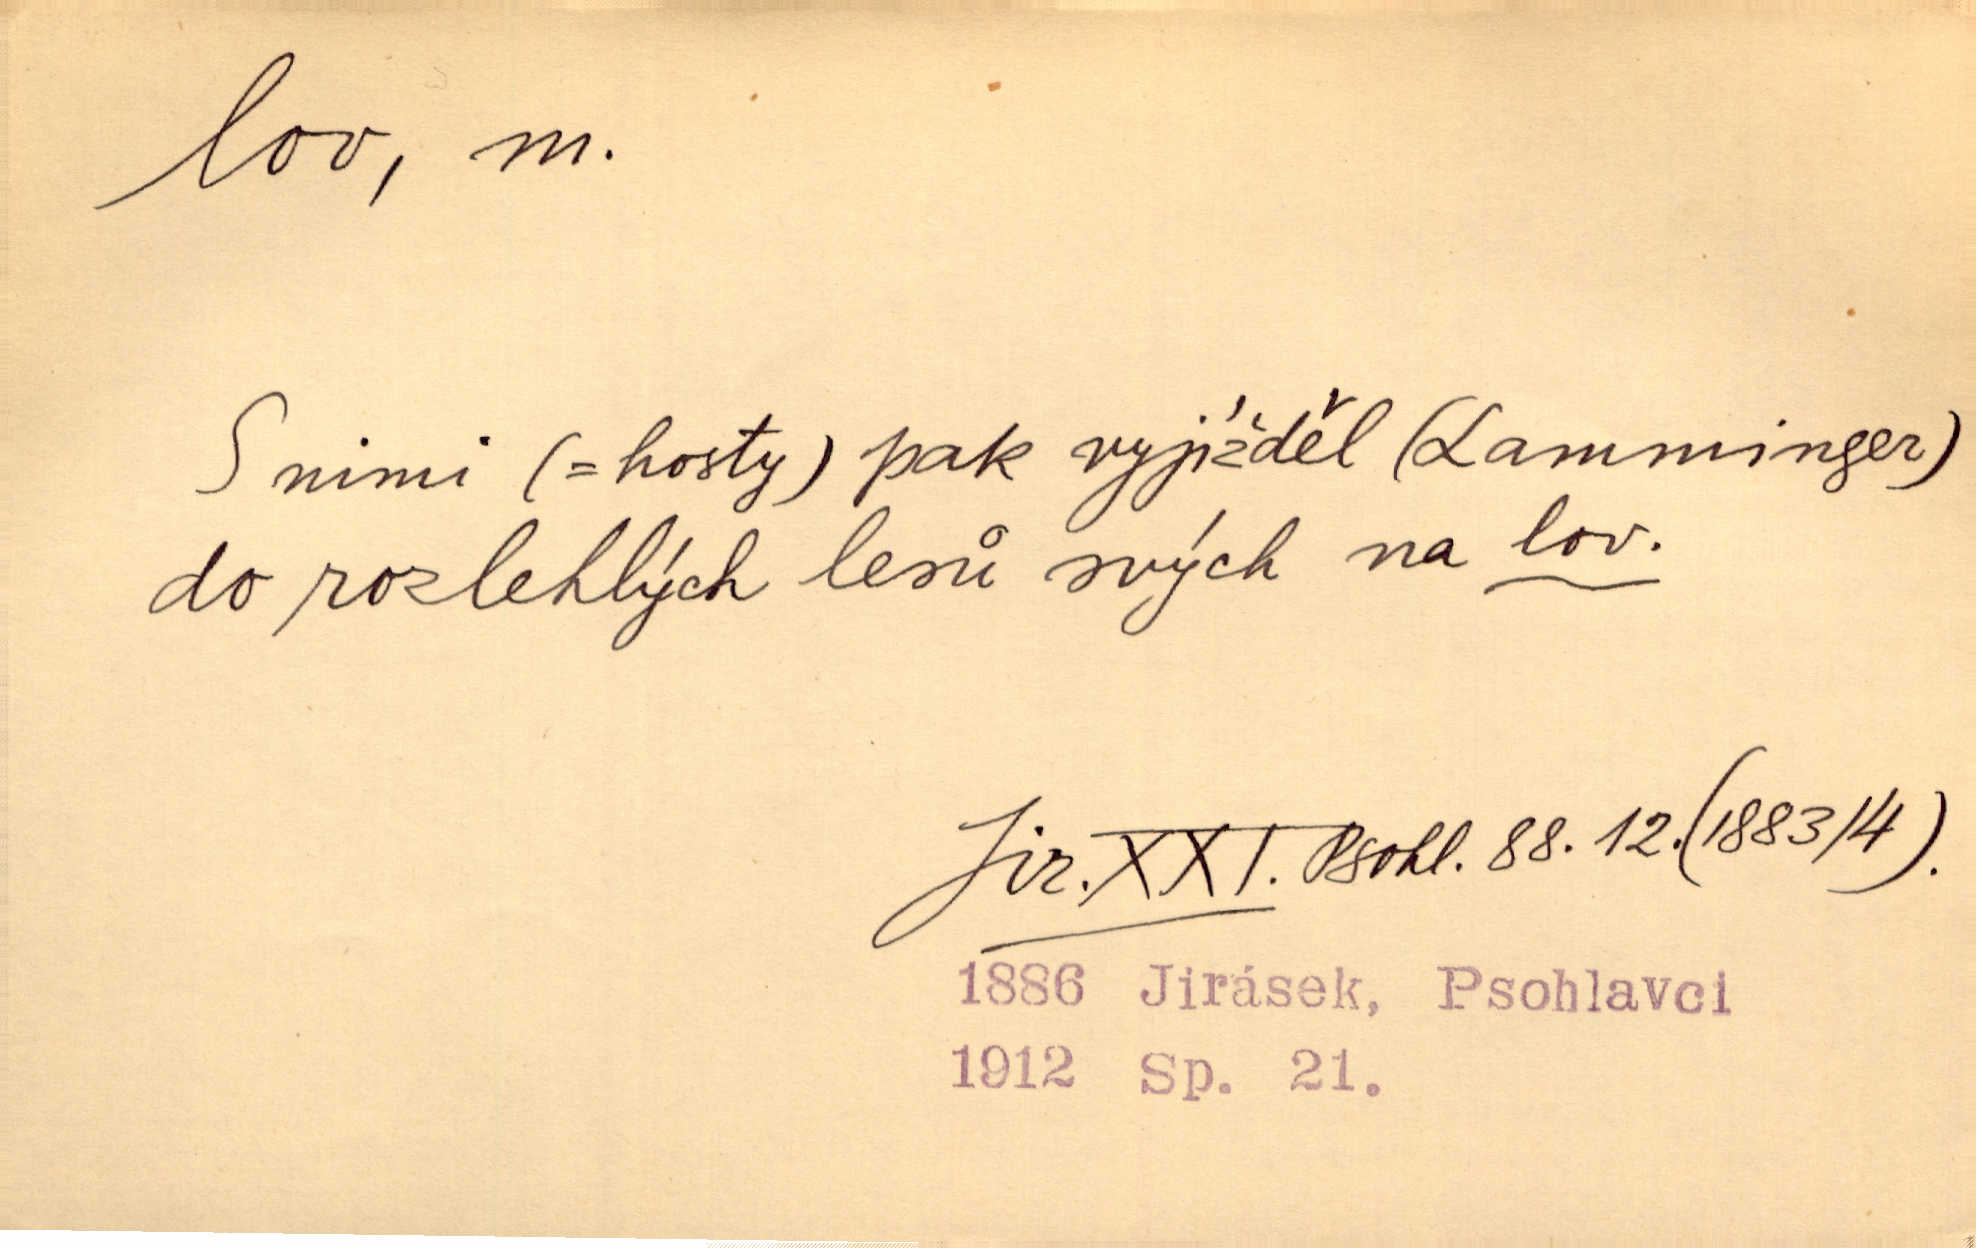 lov, m.
S nimi (= hosty) pak vyjížděl (Lamminger)
do rozlehlých lesů svých na lov.
Jir. XXI. Psohl. 88. 12. (1883/4).
1886 Jirásek, Psohlavci
1912 Sp. 21.